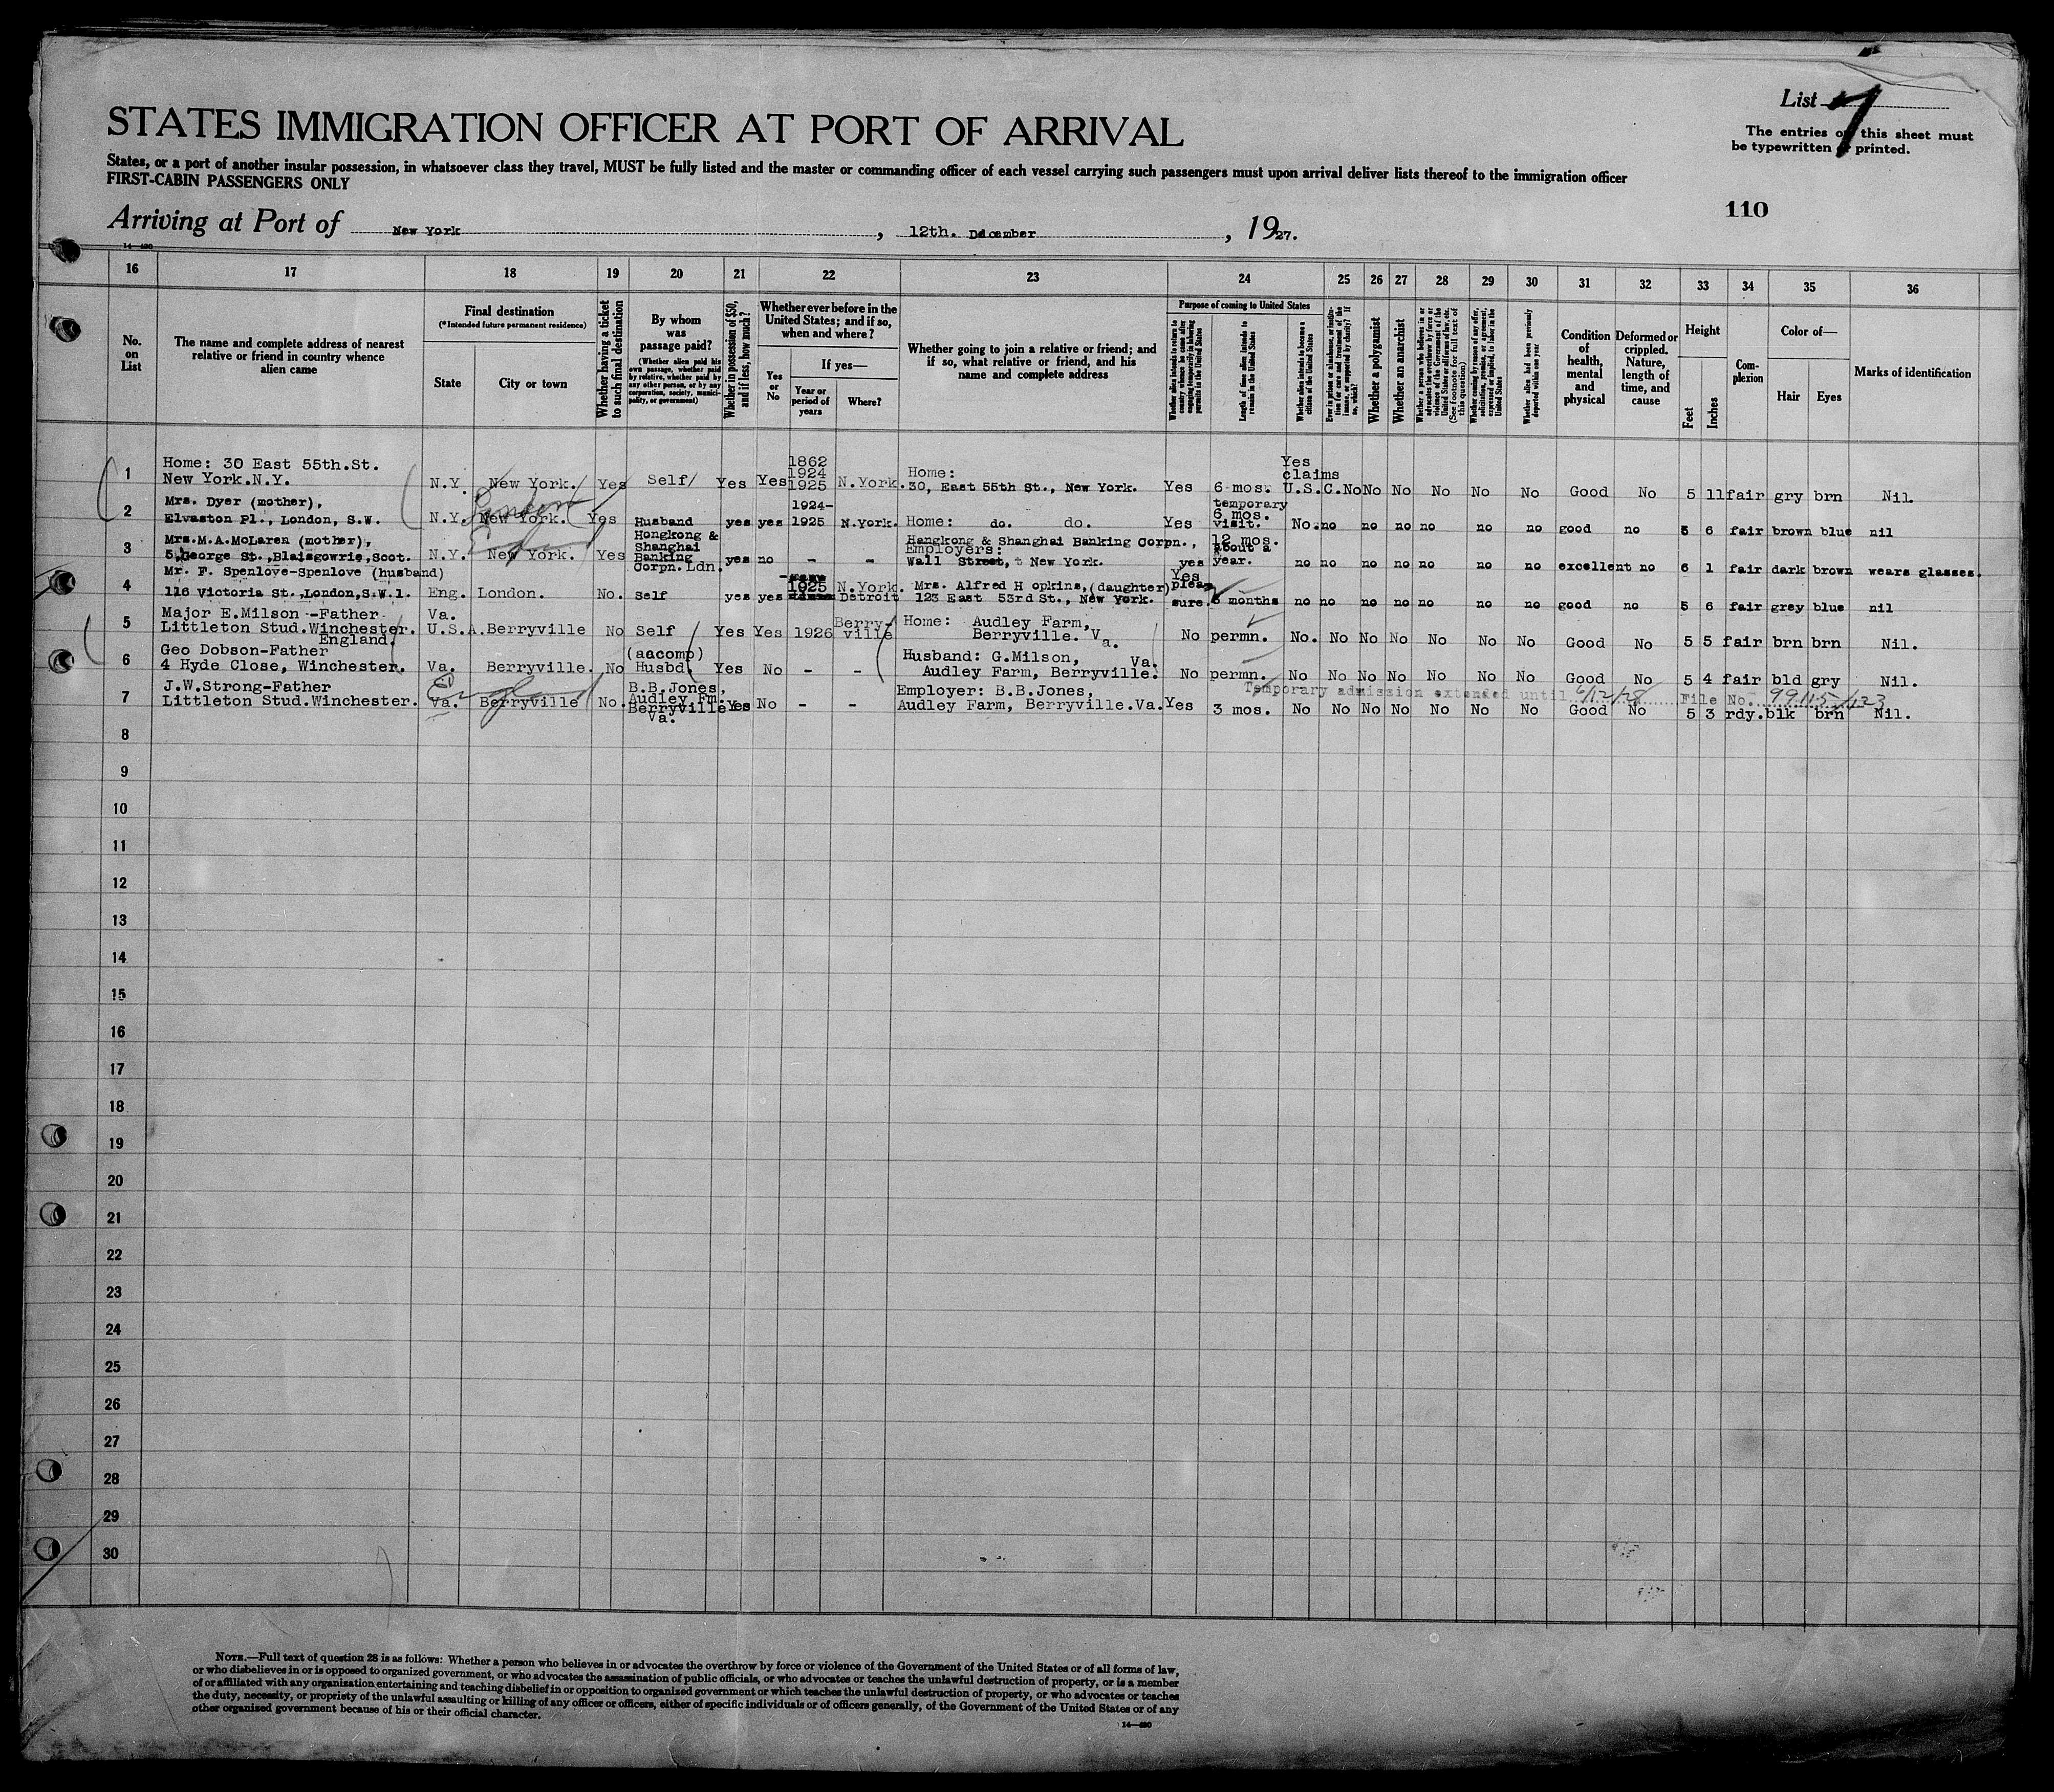 List 7
STATES IMMIGRATION OFFICER AT PORT OF ARRIVAL
The entries on this sheet must
be typewritten or printed.
States, or a port of another insular possession, in whatsoever class they travel, MUST be fully listed and the master or commanding officer of each vessel carrying such passengers must upon arrival deliver lists thereof to the immigration officer
FIRST-CABIN PASSENGERS ONLY
110
Arriving at Port of New York, 12th. December, 1927.
14—430
16 17 18 19 20 21 22 23 24 25 26 27 28 29 30 31 32 33 34 35 36
No. on List
The name and complete address of nearest relative or friend in country whence alien came
Final destination
(*Intended future permanent residence)
State
City or town
Whether having a ticket to such final destination
By whom was passage paid?
(Whether alien paid his own passage, whether paid by relative, whether paid by any other person, or by any corporation, society, municipality, or government)
Whether in possession of $50, and if less, how much?
Whether ever before in the United States; and if so, when and where?
Yes or No
If yes—
Year or period of years
Where?
Whether going to join a relative or friend; and if so, what relative or friend, and his name and complete address
Purpose of coming to United States
Whether alien intends to return to country whence he came after engaging temporarily in laboring pursuits in the United States
Length of time alien intends to remain in the United States
Whether alien intends to become a citizen of the United States
Ever in prison or almshouse, or institution for care and treatment of the insane, or supported by charity? If so, which?
Whether a polygamist
Whether an anarchist
Whether a person who believes in or advocates the overthrow by force or violence of the Government of the United States or all forms of law, etc. (See footnote for full text of this question)
Whether coming by reason of any offer, solicitation, promise, or agreement, expressed or implied, to labor in the United States
Whether alien had been previously deported within one year
Condition of health, mental and physical
Deformed or crippled. Nature, length of time, and cause
Height
Feet
Inches
Complexion
Color of—
Hair
Eyes
Marks of identification
1 Home: 30 East 55th.St. New York.N.Y. N.Y. New York. Yes Self Yes Yes 1862 1924 1925 N.York. Home: 30, East 55th St., New York. Yes 6 mos. Yes claims U.S.C. No No No No No No Good No 5 11 fair gry brn Nil.
2 Mrs. Dyer (mother), Elvaston Pl., London, S.W. N.Y. New York. London Yes Husband yes yes 1924- 1925 N.York. Home: do. do. Yes temporary 6 mos. visit. No. no no no no no no good no 5 6 fair brown blue nil
3 Mrs.M.A.McLaren (mother), 5,George St.,Blairgowrie,Scot. N.Y. New York. England Yes Hongkong & Shanghai Banking Corpn.Ldn. yes no - - Hongkong & Shanghai Banking Corpn., Employers: Wall Street, New York. yes 12 mos. about a year. no no no no no no no excellent no 6 1 fair dark brown wears glasses.
4 Mr. F. Spenlove-Spenlove (husband) 116 Victoria St.,London,S.W.1. Eng. London. No. Self yes yes 1925 N.York. Detroit Mrs. Alfred Hopkins,(daughter) 123 East 53rd St., New York. Yes pleasure. 6 months no no no no no no no good no 5 6 fair grey blue nil
5 Major E.Milson -Father Littleton Stud.Winchester. England. Va. U.S.A. Berryville No Self Yes Yes 1926 Berryville Home: Audley Farm, Berryville. Va. No permn. No. No No No No No No Good No 5 5 fair brn brn Nil.
6 Geo Dobson-Father 4 Hyde Close, Winchester. Va. Berryville. No (aacomp) Husbd. Yes No - - Husband: G.Milson, Audley Farm, Berryville. Va. No permn. No No No No No No No Good No 5 4 fair bld gry Nil.
Temporary admission extended until 6/12/28 File No. 99115/423
7 J.W.Strong-Father Littleton Stud.Winchester. Va. Berryville England No. B.B.Jones, Audley Fm. Berryville Va. Yes No - - Employer: B.B.Jones, Audley Farm, Berryville.Va. Yes 3 mos. No No No No No No No Good No 5 3 rdy. blk brn Nil.
8
9
10
11
12
13
14
15
16
17
18
19
20
21
22
23
24
25
26
27
28
29
30
NOTE.—Full text of question 28 is as follows: Whether a person who believes in or advocates the overthrow by force or violence of the Government of the United States or of all forms of law,
or who disbelieves in or is opposed to organized government, or who advocates the assassination of public officials, or who advocates or teaches the unlawful destruction of property, or is a member
of or affiliated with any organization entertaining and teaching disbelief in or opposition to organized government or which teaches the unlawful destruction of property, or who advocates or teaches
the duty, necessity, or propriety of the unlawful assaulting or killing of any officer or officers, either of specific individuals or of officers generally, of the Government of the United States or of any
other organized government because of his or their official character.
14—430